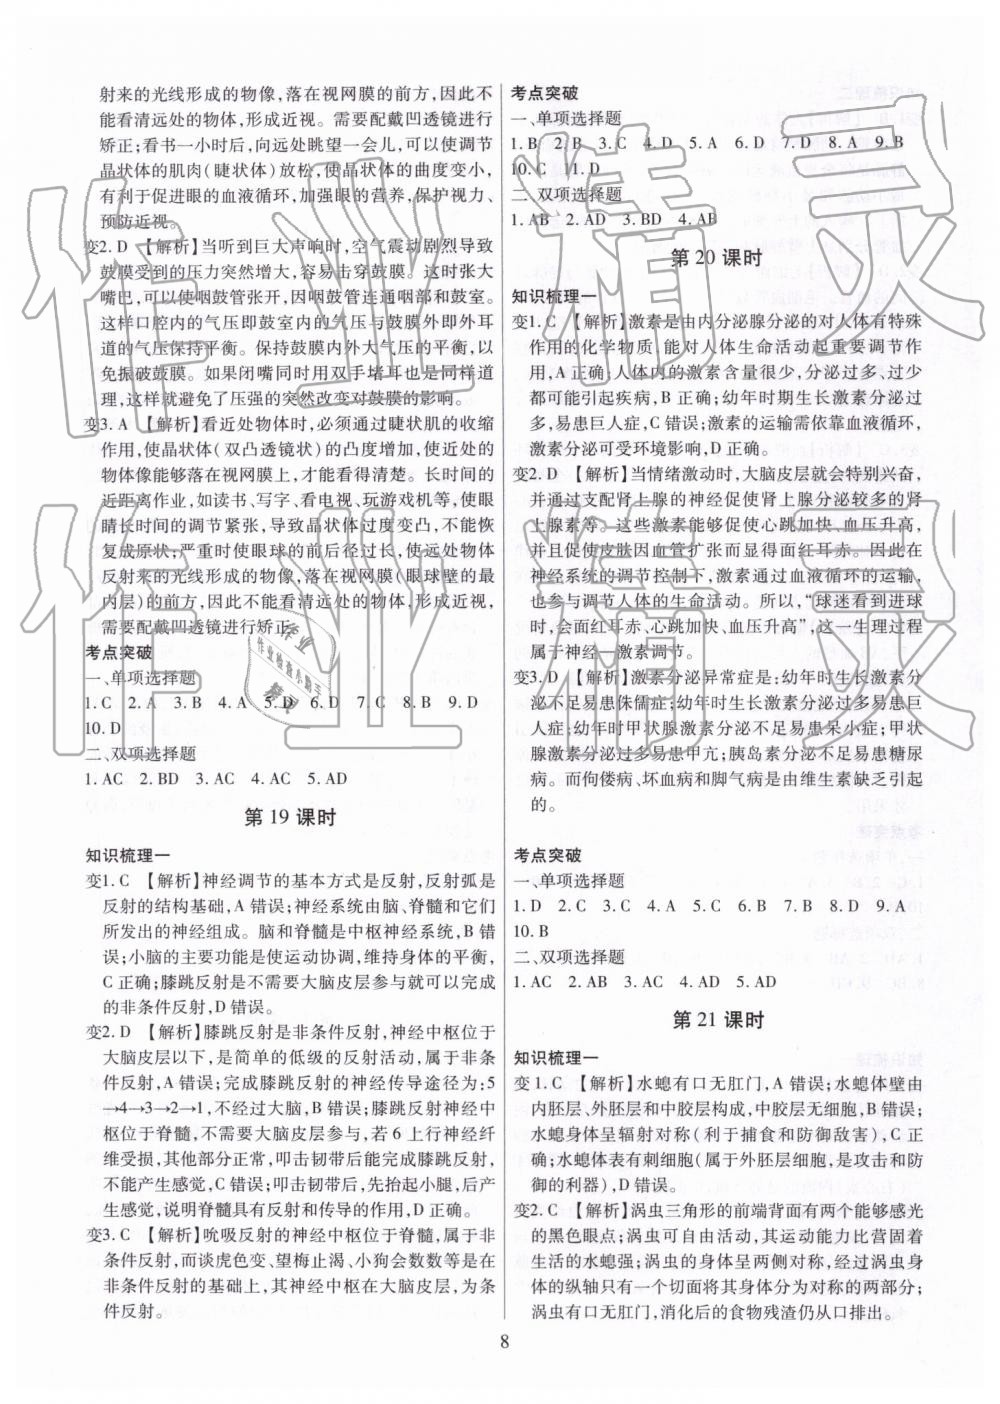 射来的光线形成的物像，落在视网膜的前方，因此不能
能看清远处的物体，形成近视。需要配戴凹透镜进行
矫正；看书一小时后，向远处眺望一会儿，可以使调节
晶状体的肌肉（睫状体）放松，使晶状体的曲度变小，
有利于促进眼的血液循环，加强眼的营养，保护视力，
预防近视。
变2. D 【解析】当听到巨大声响时，空气震动剧烈导致
鼓膜受到的压力突然增大，容易击穿鼓膜。这时张大
嘴巴，可以使咽鼓管张开，因咽鼓管连通咽部和鼓室。
这样口腔内的气压即鼓室内的气压与鼓膜外即外耳
道的气压保持平衡。保持鼓膜内外大气压的平衡，以
免振破鼓膜。如果闭嘴同时用双手堵耳也是同样道
理，这样就避免了压强的突然改变对鼓膜的影响。
变3. A 【解析】看近处物体时，必须通过睫状肌的收缩
作用，使晶状体（双凸透镜状）的凸度增加，使近处的
物体像能够落在视网膜上，才能看得清楚。长时间的
近距离作业，如读书、写字、看电视、玩游戏机等，使眼
睛长时间的调节紧张，导致晶状体过度变凸，不能恢
复成原状；严重时使眼球的前后径过长，使远处物体
反射来的光线形成的物像，落在视网膜（眼球壁的最
内层）的前方，因此不能看清远处的物体，形成近视，
需要配戴凹透镜进行矫正。
考点突破
一、单项选择题
1. C 2. A 3. B 4. A 5. D 6. D 7. C 8. B 9. D
10. D
二、双项选择题
1. AC 2. BD 3. AC 4. AC 5. AD
第 19 课时
知识梳理一
变1. C 【解析】神经调节的基本方式是反射，反射弧是
反射的结构基础，A 错误；神经系统由脑、脊髓和它们
所发出的神经组成。脑和脊髓是中枢神经系统，B 错
误；小脑的主要功能是使运动协调，维持身体的平衡，
C 正确；膝跳反射不需要大脑皮层参与就可以完成
的非条件反射，D 错误。
变2. D 【解析】膝跳反射是非条件反射，神经中枢位于
大脑皮层以下，是简单的低级的反射活动，属于非条
件反射，A 错误；完成膝跳反射的神经传导途径为：5
→4→3→2→1，不经过大脑，B 错误；膝跳反射神经中
枢位于脊髓，不需要大脑皮层参与，若 6 上行神经纤
维受损，其他部分正常，叩击韧带后能完成膝跳反射，
不能产生感觉，C 错误；叩击韧带后，先抬起小腿，后产
生感觉，说明脊髓具有反射和传导的作用，D 正确。
变3. C 【解析】吮吸反射的神经中枢位于脊髓，属于非
条件反射，而谈虎色变、望梅止渴、小狗会数数等是在
非条件反射的基础上，其神经中枢在大脑皮层，为条
件反射。
考点突破
一、单项选择题
1. B 2. B 3. C 4. D 5. A 6. D 7. D 8. A 9. B
10. C 11. D
二、双项选择题
1. AB 2. AD 3. BD 4. AB
第 20 课时
知识梳理一
变1. C 【解析】激素是由内分泌腺分泌的对人体有特殊
作用的化学物质，能对人体生命活动起重要调节作
用，A 正确；人体内的激素含量很少，分泌过多、过少
都可能引起疾病，B 正确；幼年时期生长激素分泌过
多，易患巨人症，C 错误；激素的运输需依靠血液循环，
激素分泌可受环境影响，D 正确。
变2. D 【解析】当情绪激动时，大脑皮层就会特别兴奋，
并通过支配肾上腺的神经促使肾上腺分泌较多的肾
上腺素等。这些激素能够促使心跳加快、血压升高，
并且促使皮肤因血管扩张而显得面红耳赤。因此在
神经系统的调节控制下，激素通过血液循环的运输，
也参与调节人体的生命活动。所以，“球迷看到进球
时，会面红耳赤、心跳加快、血压升高”，这一生理过程
属于神经—激素调节。
变3. D 【解析】激素分泌异常症是：幼年时生长激素分
泌不足易患侏儒症；幼年时生长激素分泌过多易患巨
人症；幼年时甲状腺激素分泌不足易患呆小症；甲状
腺激素分泌过多易患甲亢；胰岛素分泌不足易患糖尿
病。而佝偻病、坏血病和脚气病是由维生素缺乏引起
的。
考点突破
一、单项选择题
1. D 2. C 3. C 4. D 5. C 6. B 7. B 8. D 9. A
10. B
二、双项选择题
1. AC 2. AB 3. AD 4. AC 5. AC
第 21 课时
知识梳理一
变 1. C 【解析】水螅有口无肛门，A 错误；水螅体壁由
内胚层、外胚层和中胶层构成，中胶层无细胞，B 错误；
水螅身体呈辐射对称（利于捕食和防御敌害），C 正
确；水螅体表有刺细胞（属于外胚层细胞，是攻击和防
御的利器），D 错误。
变2. C 【解析】涡虫三角形的前端背面有两个能够感光
的黑色眼点；涡虫没有专门的运动器官，其运动能力比营固着
生活的水螅强；涡虫的身体呈两侧对称，即涡虫身体
的纵轴只有一个切面将其身体分为对称的两部分；
涡虫有口无肛门，消化后的食物残渣仍从口排出。
8
作业精灵
作业精灵
作业
作业检查小助手
精灵